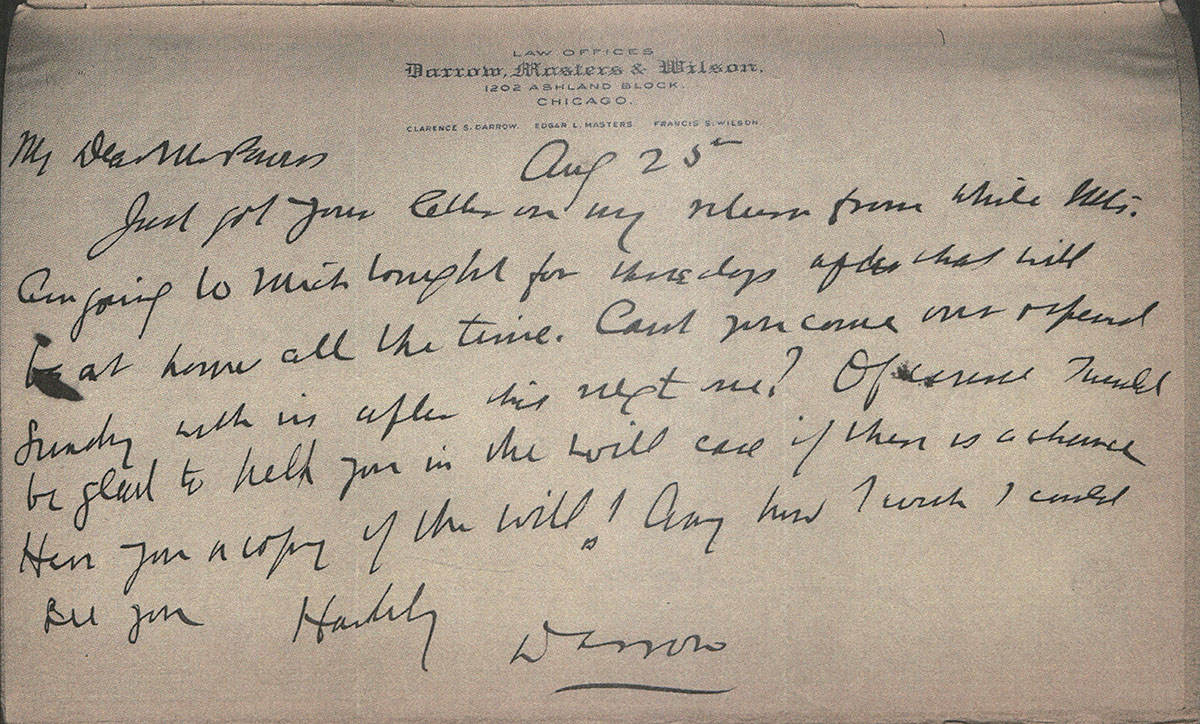 LAW OFFICES
Darrow, Masters & Wilson.
1202 ASHLAND BLOCK.
CHICAGO.
CLARENCE S. DARROW. EDGAR L. MASTERS. FRANCIS S. WILSON.
Aug 25th
My Dear Mr
Just got your letter on my return from White Mts.
Am going to Mich tonight for three days after that will
be at home all the time. Cant you come over & spend
Sunday with us after this next one? Of course I would
be glad to help you in the will case if there is a chance
Have you a copy of the will? Any how I wish I could
see you
Darrow